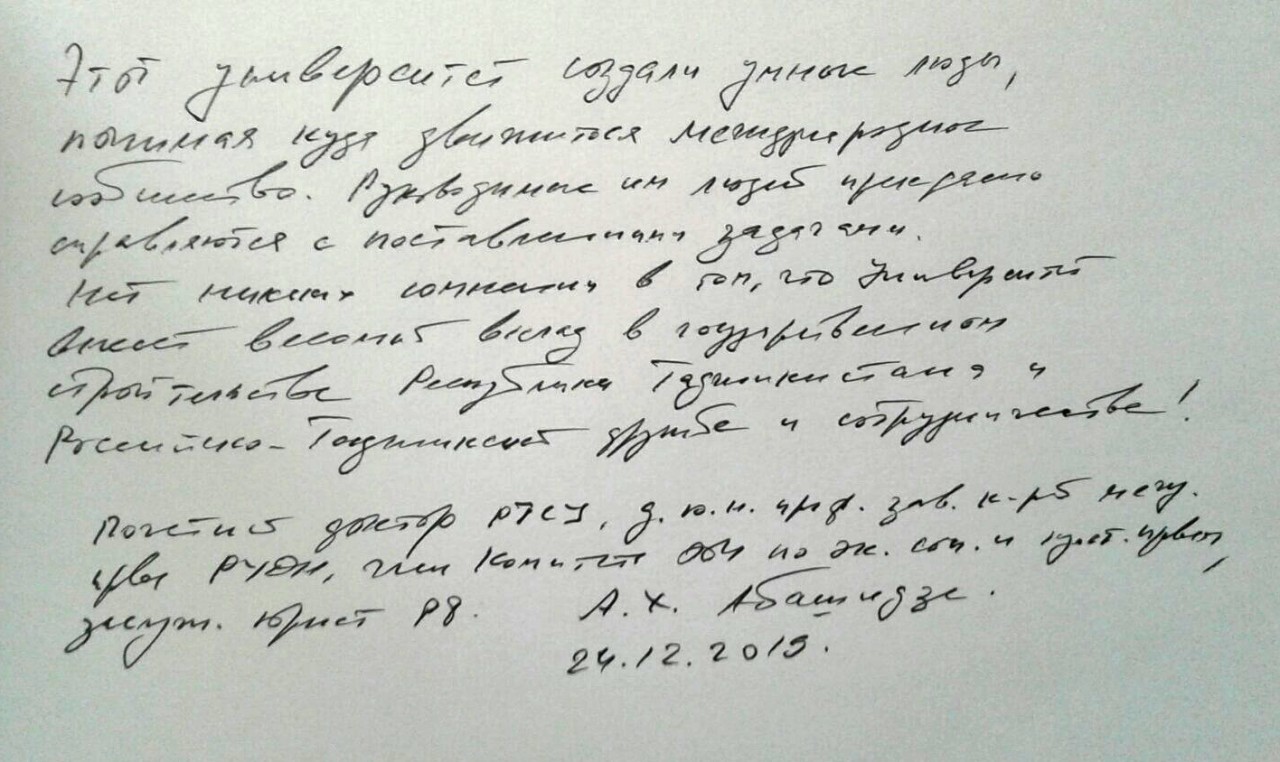 Этот университет создали умные люди,
понимая куда движится международное
сообщество. Руководимые им людей прекрасно
справляются с поставленными задачами.
Нет никаких сомнений в том, что Университет
внесет весомый вклад в государственном
строительстве Республики Таджикистана и
Российско-Таджикской дружбе и сотрудничестве!
Почетный доктор РТСУ, д.ю.н. проф. зав. к-рой межд.
права РУДН, член Комитета ООН по эк. соц. и культ. правам,
заслуж. юрист РФ. А.Х. Абашидзе.
24.12.2019.